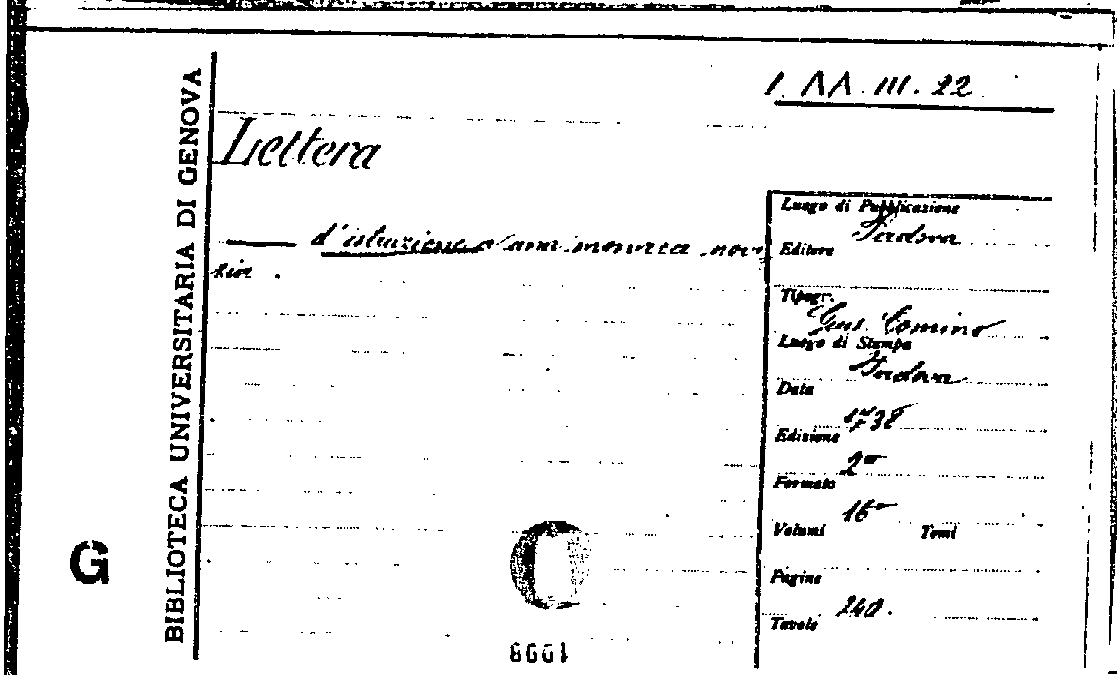 1. AA. III. 22
Lettera
d'istruzione a una monaca novi
BIBLIOTECA UNIVERSITARIA DI GENOVA
G
Luogo di Pubblicazione
Padova
Editore
Tipogr.
Gius. Comino
Luogo di Stampa
Padova
Data
1738
Edizione
2ª
Formato
16º
Volumi Tomi
Pagine
240.
Tavole